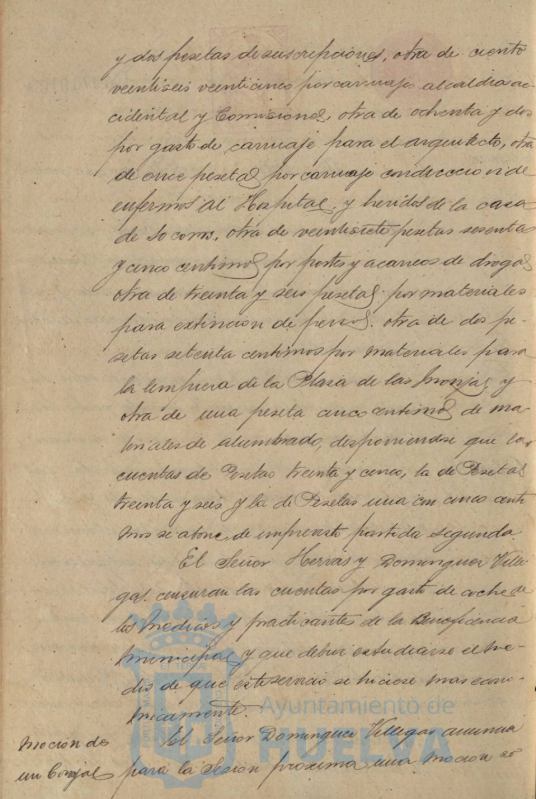 y dos pesetas de suscrepciones, otra de ciento
veintiseis veinticinco por carruaje alcaldia ac-
cidental y Comisiones, otra de ochenta y dos
por gasto de carruaje para el arquitecto, otra
de once pesetas por carruaje conduccion de
enfermos al Hospital, y heridos de la casa
de Socorro, otra de veintisiete pesetas sesenta
y cinco centimos por portes y acarreos de drogas
otra de treinta y seis pesetas por materiales
para extincion de perros, otra de dos pe-
setas setenta centimos por materiales para
la limpieza de la Plaza de las Monjas y
otra de una peseta cinco centimos de ma-
teriales de alumbrado, disponiendose que las
cuentas de Pesetas treinta y cinco, la de Pesetas
treinta y seis y la de Pesetas una con cinco centi-
mos se abone de imprevisto partida segunda
El Señor Hervas y Dominguez Ville-
gas censuran las cuentas por gasto de coche de
los Medicos y practicante de la Beneficencia
Municipal, y que debia estudiarse el me-
dio de que este servicio se hiciese mas econo-
micamente.
Mocion de
un Concejal
El Señor Dominguez Villegas anuncia
para la Sesion proxima una mocion
Ayuntamiento de
HUELVA